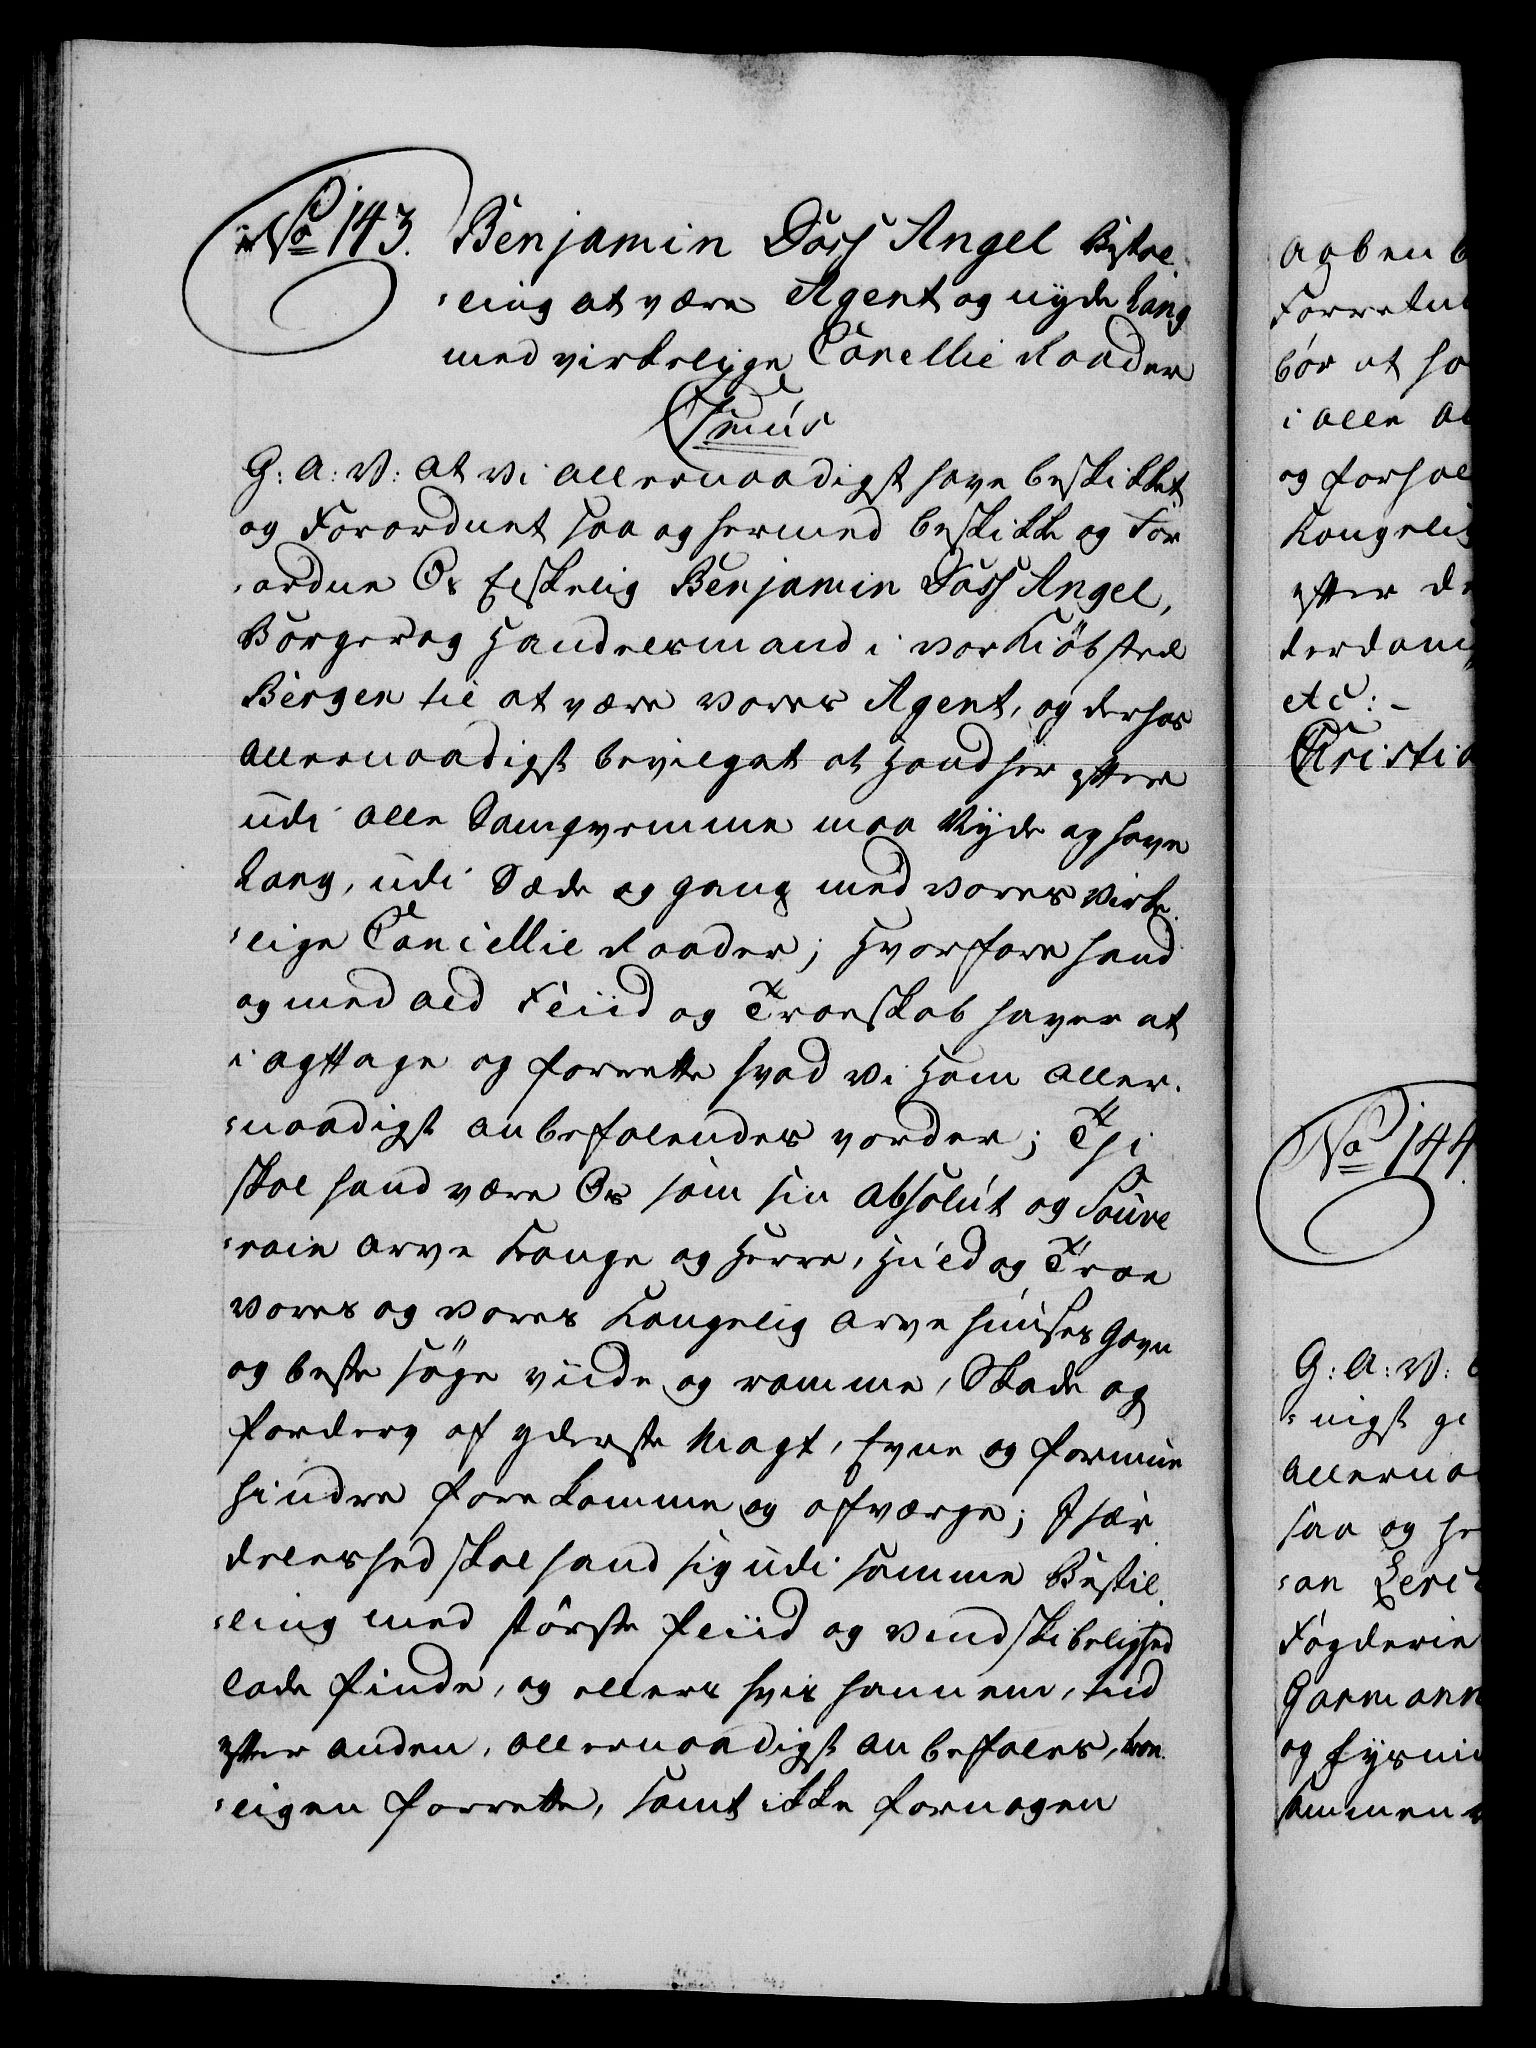 No 143. Benjamin Doss Angel Bestal
ling at være Agent og nyde Rang
med virkelige Cancellie Raader
Cmus
G: A: V: at vi allernaadigst have beskikket
og Forordnet saa og hermed beskikke og For
ordne Os Elskelig Benjamin Doss Angel,
Borger og Handelsmand i vor Kiöbsted
Bergen til at være vores Agent, og derhos
allernaadigst bevilget at Hand her efter
udi alle Samqvemme maa Nyde og have
Rang, udi Sæde og gang med vores virke
lige Cancellie Raader; Hvorfore hand
og med ald Fliid og Troeskab haver at
i agttage og forrette hvad vi Ham aller
naadigst anbefalendes vorder; Thi
skal hand være Os som sin absolut og Souve
rain arve Konge og Herre, Huld og Troe
vores og vores Kongelig arve Huuses Gavn
og beste söge viide og ramme, Skade og
forderv af yderste Magt, Evne og formue
hindre forekomme og afværge; Især
deleshed skal hand sig udi samme Bestil
ling med störste fliid og vindskibelighed
lade finde, og ellers hvis hannem, tid
efter anden, allernaadigst anbefales, troe
ligen forrette, samt ikke fornogen
aaben b
Forretni
bör at ha
i alle a
og forhol
Kongelig
efter de
derdani
etc: -
Christia
No 144.
G: A: V:
nigst gi
Allerna
saa og he
an
Fogderie
Garmann
og
ammen